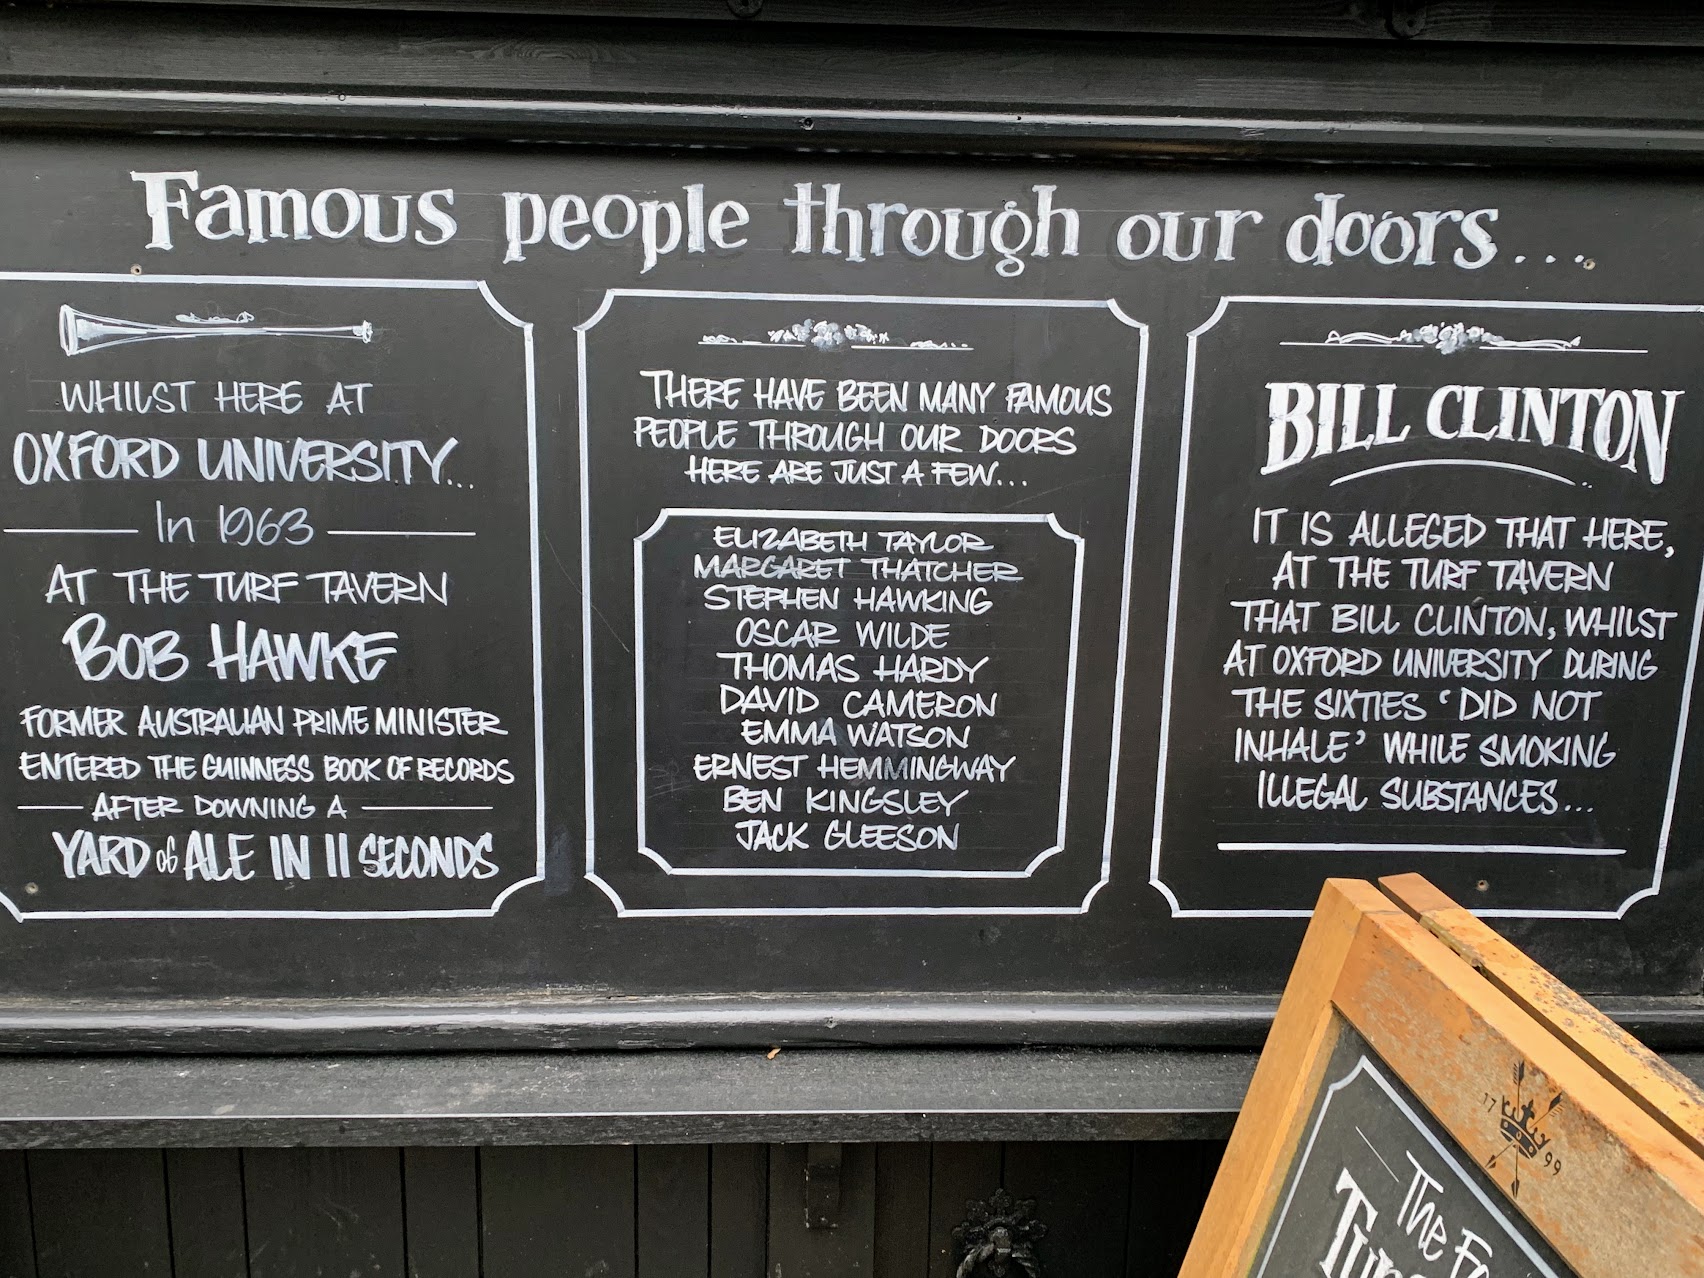 Famous people through our doors...
WHILST HERE AT
OXFORD UNIVERSITY...
In 1963
AT THE TURF TAVERN
BOB HAWKE
FORMER AUSTRALIAN PRIME MINISTER
ENTERED THE GUINNESS BOOK OF RECORDS
AFTER DOWNING A
YARD of ALE IN 11 SECONDS
THERE HAVE BEEN MANY FAMOUS
PEOPLE THROUGH OUR DOORS
HERE ARE JUST A FEW...
ELIZABETH TAYLOR
MARGARET THATCHER
STEPHEN HAWKING
OSCAR WILDE
THOMAS HARDY
DAVID CAMERON
EMMA WATSON
ERNEST HEMMINGWAY
BEN KINGSLEY
JACK GLEESON
BILL CLINTON
IT IS ALLEGED THAT HERE,
AT THE TURF TAVERN
THAT BILL CLINTON, WHILST
AT OXFORD UNIVERSITY DURING
THE SIXTIES ‘DID NOT
INHALE’ WHILE SMOKING
ILLEGAL SUBSTANCES...
17 99
The